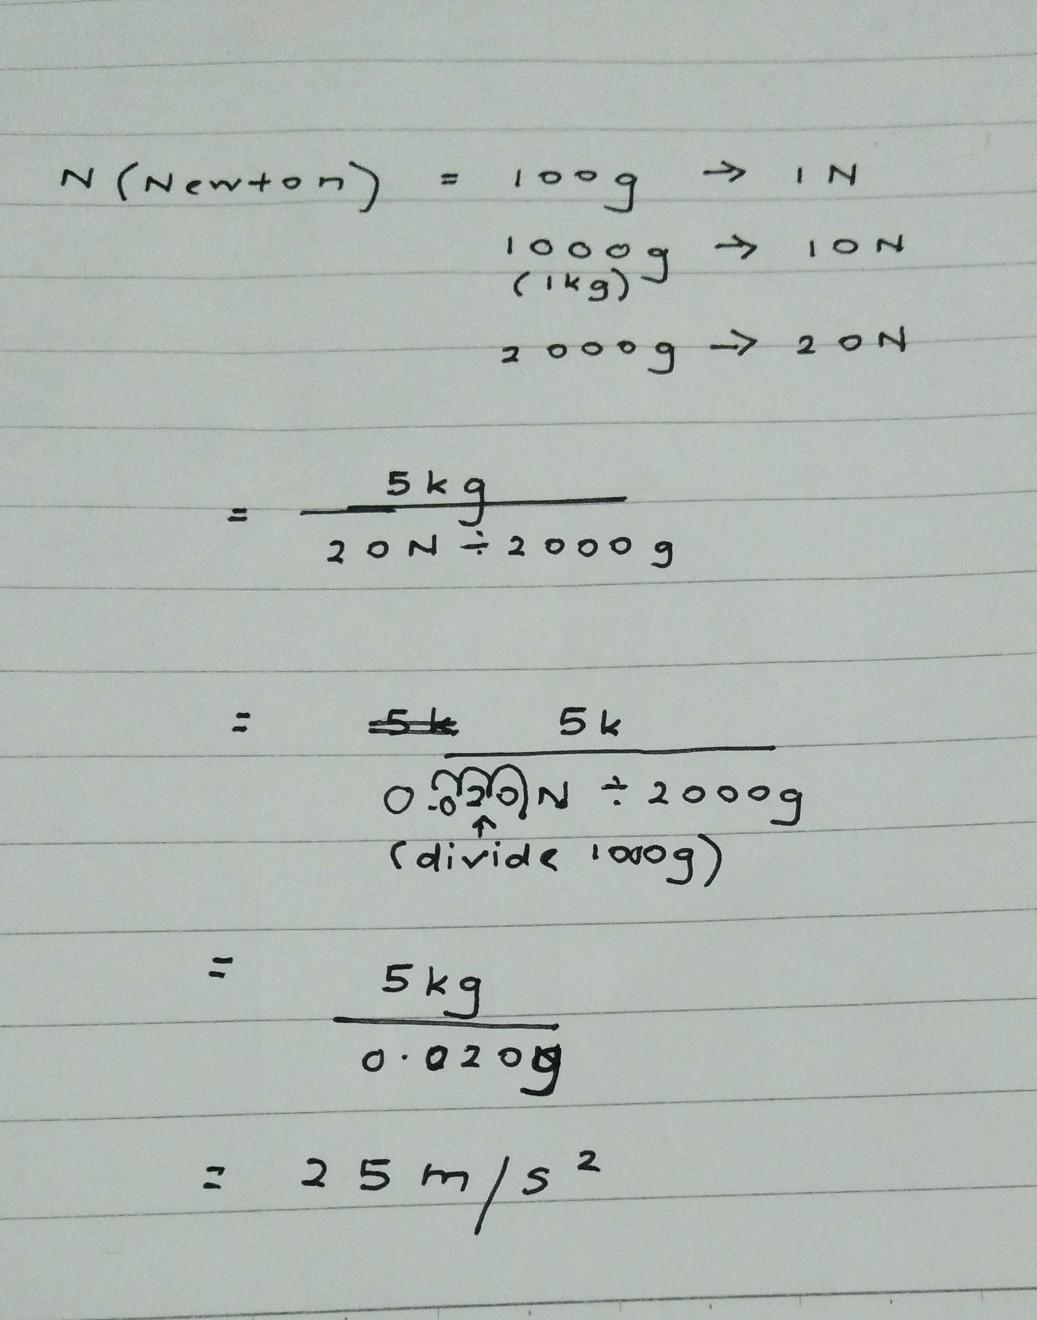 N (Newton) = 100g → 1N
1000g → 10N
(1kg)
2000g → 20N
= 5kg
20N ÷ 2000g
= 5k
N ÷ 2000g
(divide 1000g)
= 5kg
0.020g
= 25 m/s²